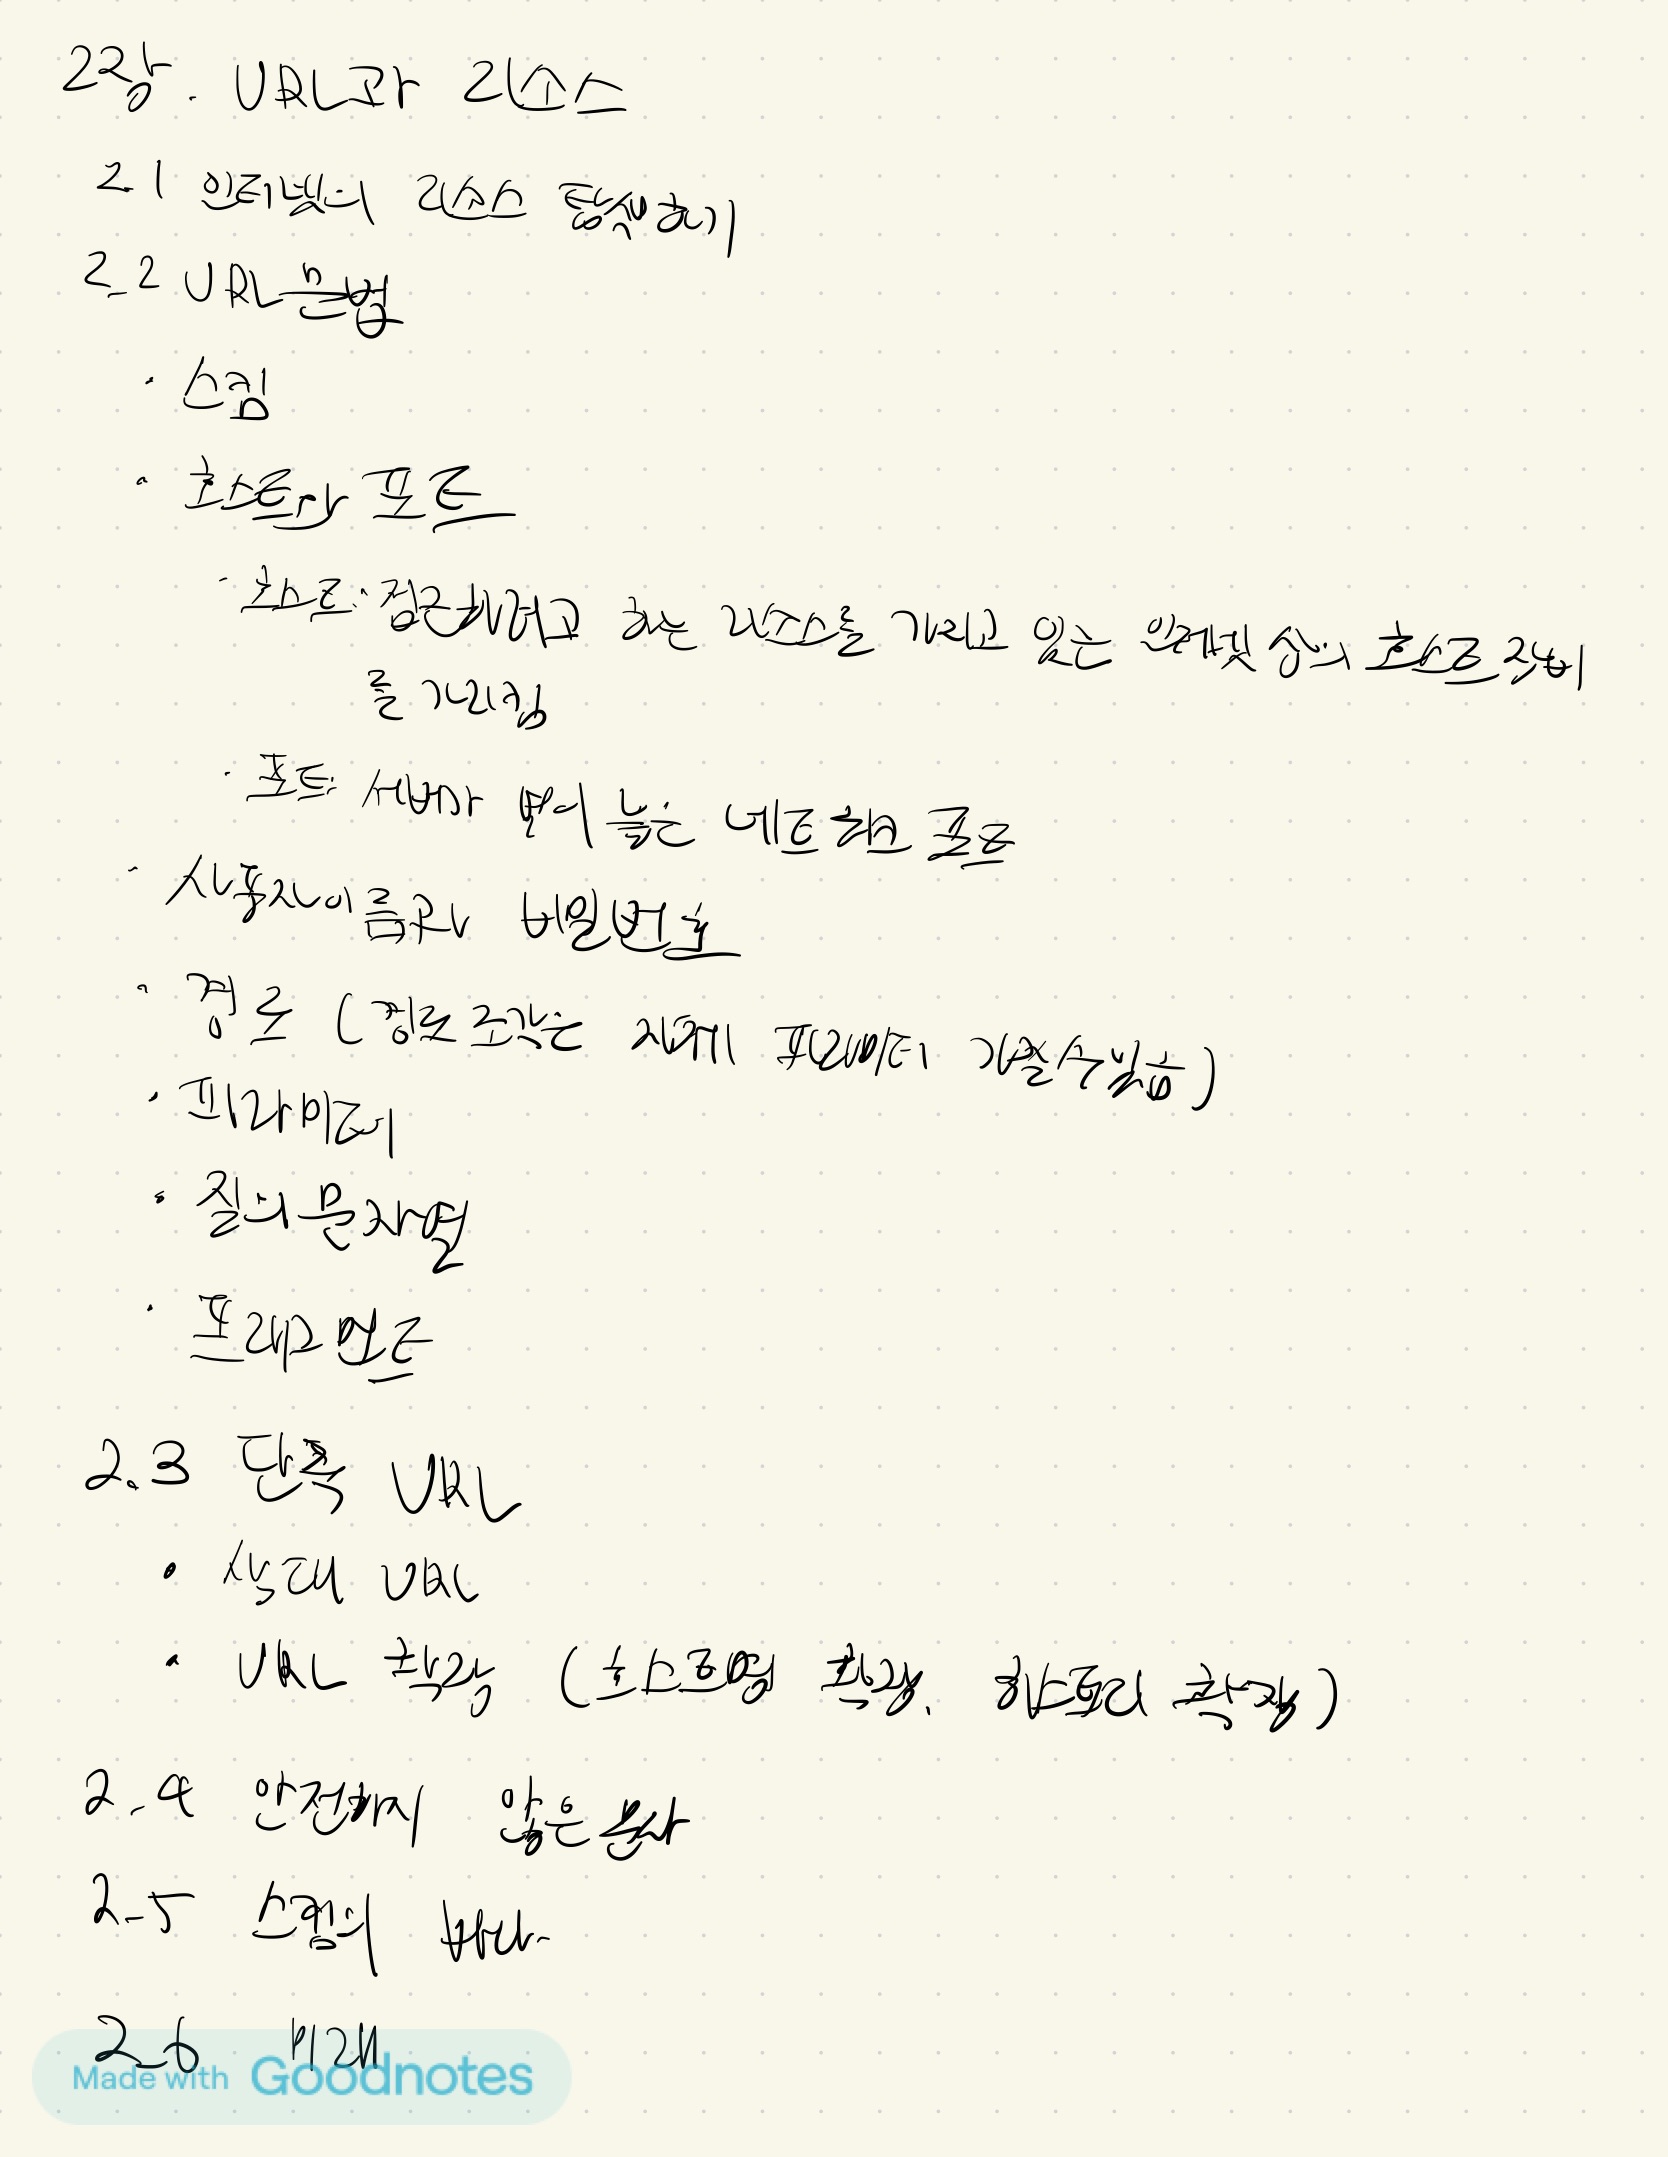 2장. URL과 리소스
2.1 인터넷의 리소스 탐색하기
2.2 URL 문법
· 스킴
· 호스트와 포트
· 호스트: 접근하려고 하는 리소스를 가지고 있는 인터넷 상의 호스트 장비
를 가리킴
· 포트: 서버가 열어 놓은 네트워크 포트
· 사용자 이름과 비밀번호
· 경로 (경로 조각은 자체 파라미터 가질 수 있음)
· 파라미터
· 질의 문자열
· 프래그먼트
2.3 단축 URL
· 상대 URL
· URL 확장 (호스트명 확장, 히스토리 확장)
2.4 안전하지 않은 문자
2.5 스킴의 바다
2.6 미래
Made with Goodnotes